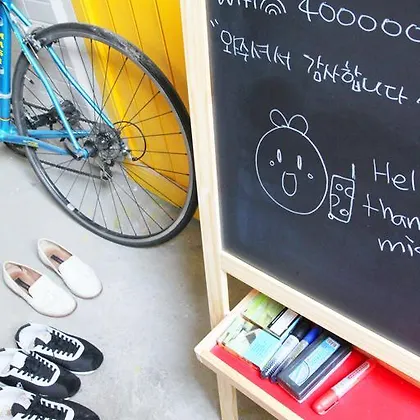 wifi 400000
"와주셔서 감사합니다
Hel
than
mi